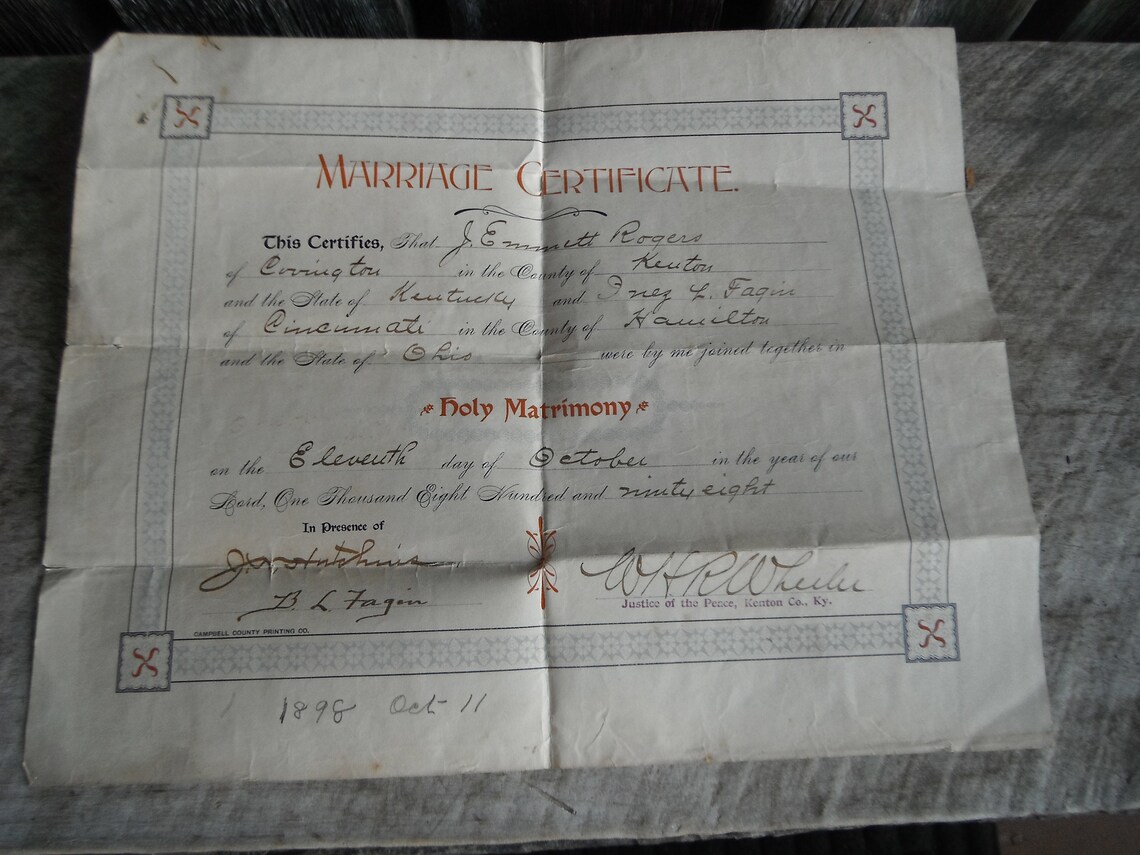 MARRIAGE CERTIFICATE.
This Certifies, That J. Emmett Rogers
of Covington in the County of Kenton
and the State of Kentucky and Inez L. Fagin
of Cincinnati in the County of Hamilton
and the State of Ohio were by me joined together in
Holy Matrimony
on the Eleventh day of October in the year of our
Lord, One Thousand Eight Hundred and ninty eight
In Presence of
Hutchins
B L Fagin
W H R Wheeler
Justice of the Peace, Kenton Co., Ky.
CAMPBELL COUNTY PRINTING CO.
1898 Oct 11